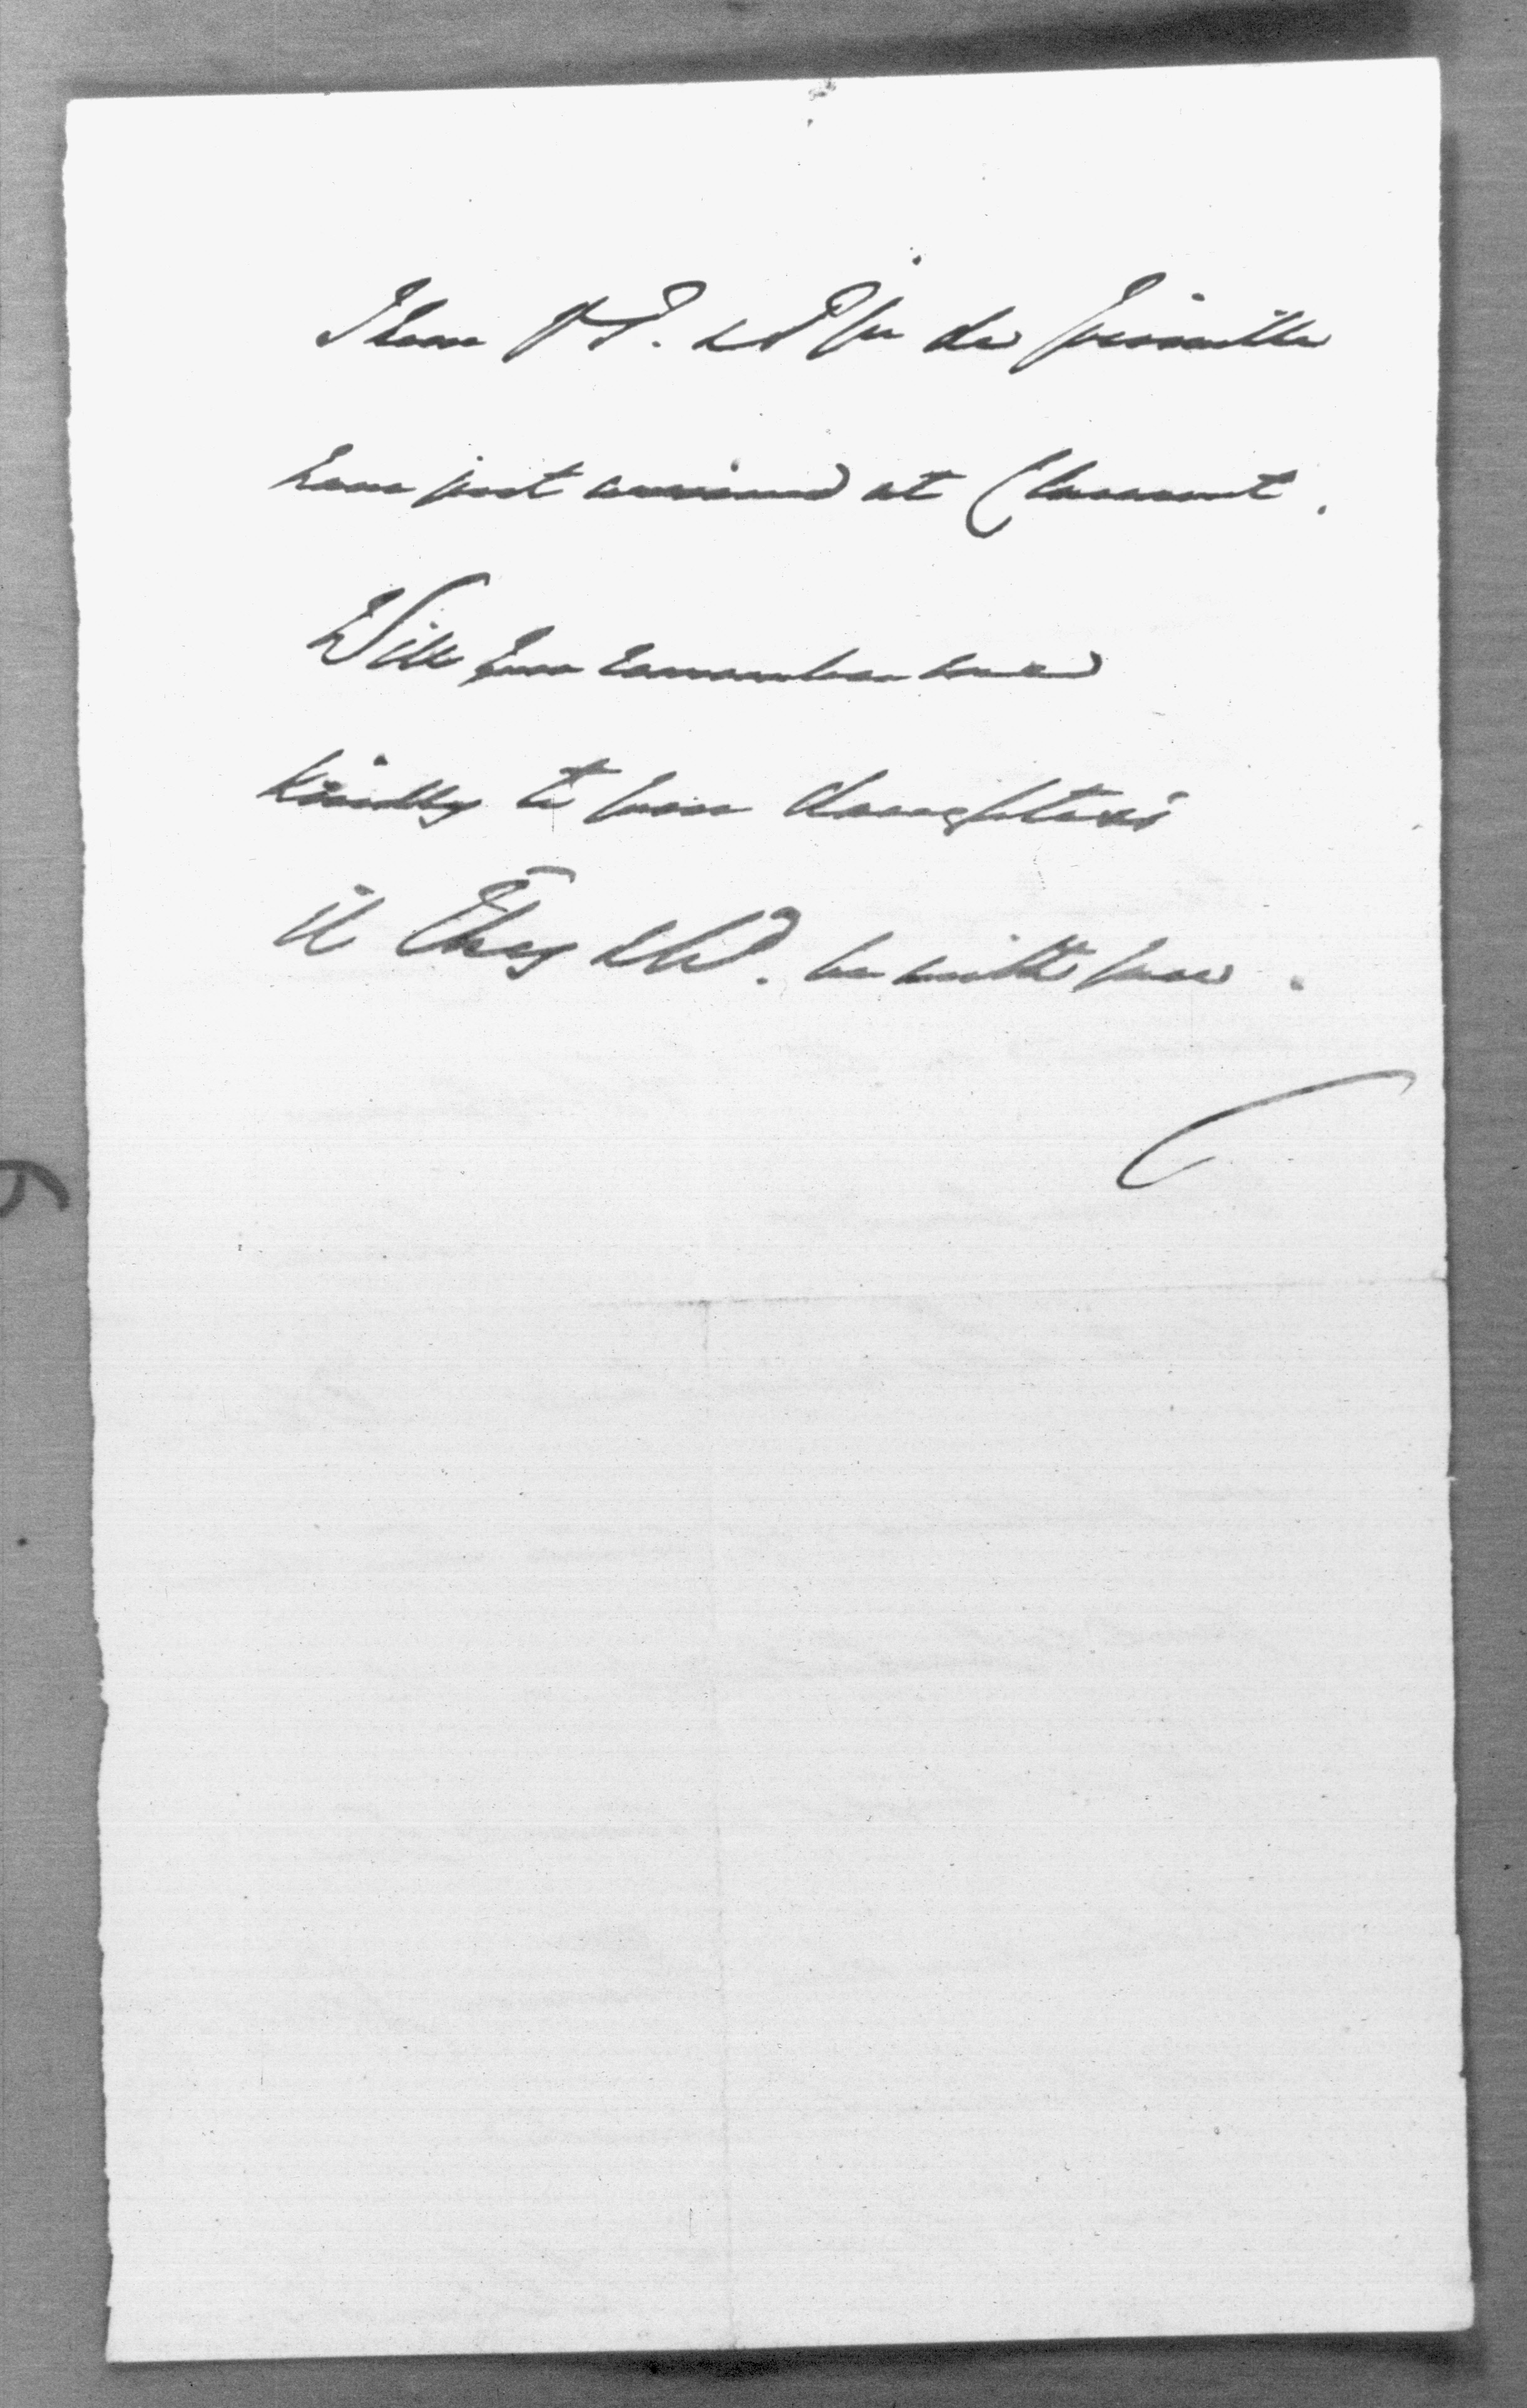 The P. & P.ss de Joinville
have just arrived at Claremont.
Will you remember me
kindly to your daughters
if they shd. be with you.